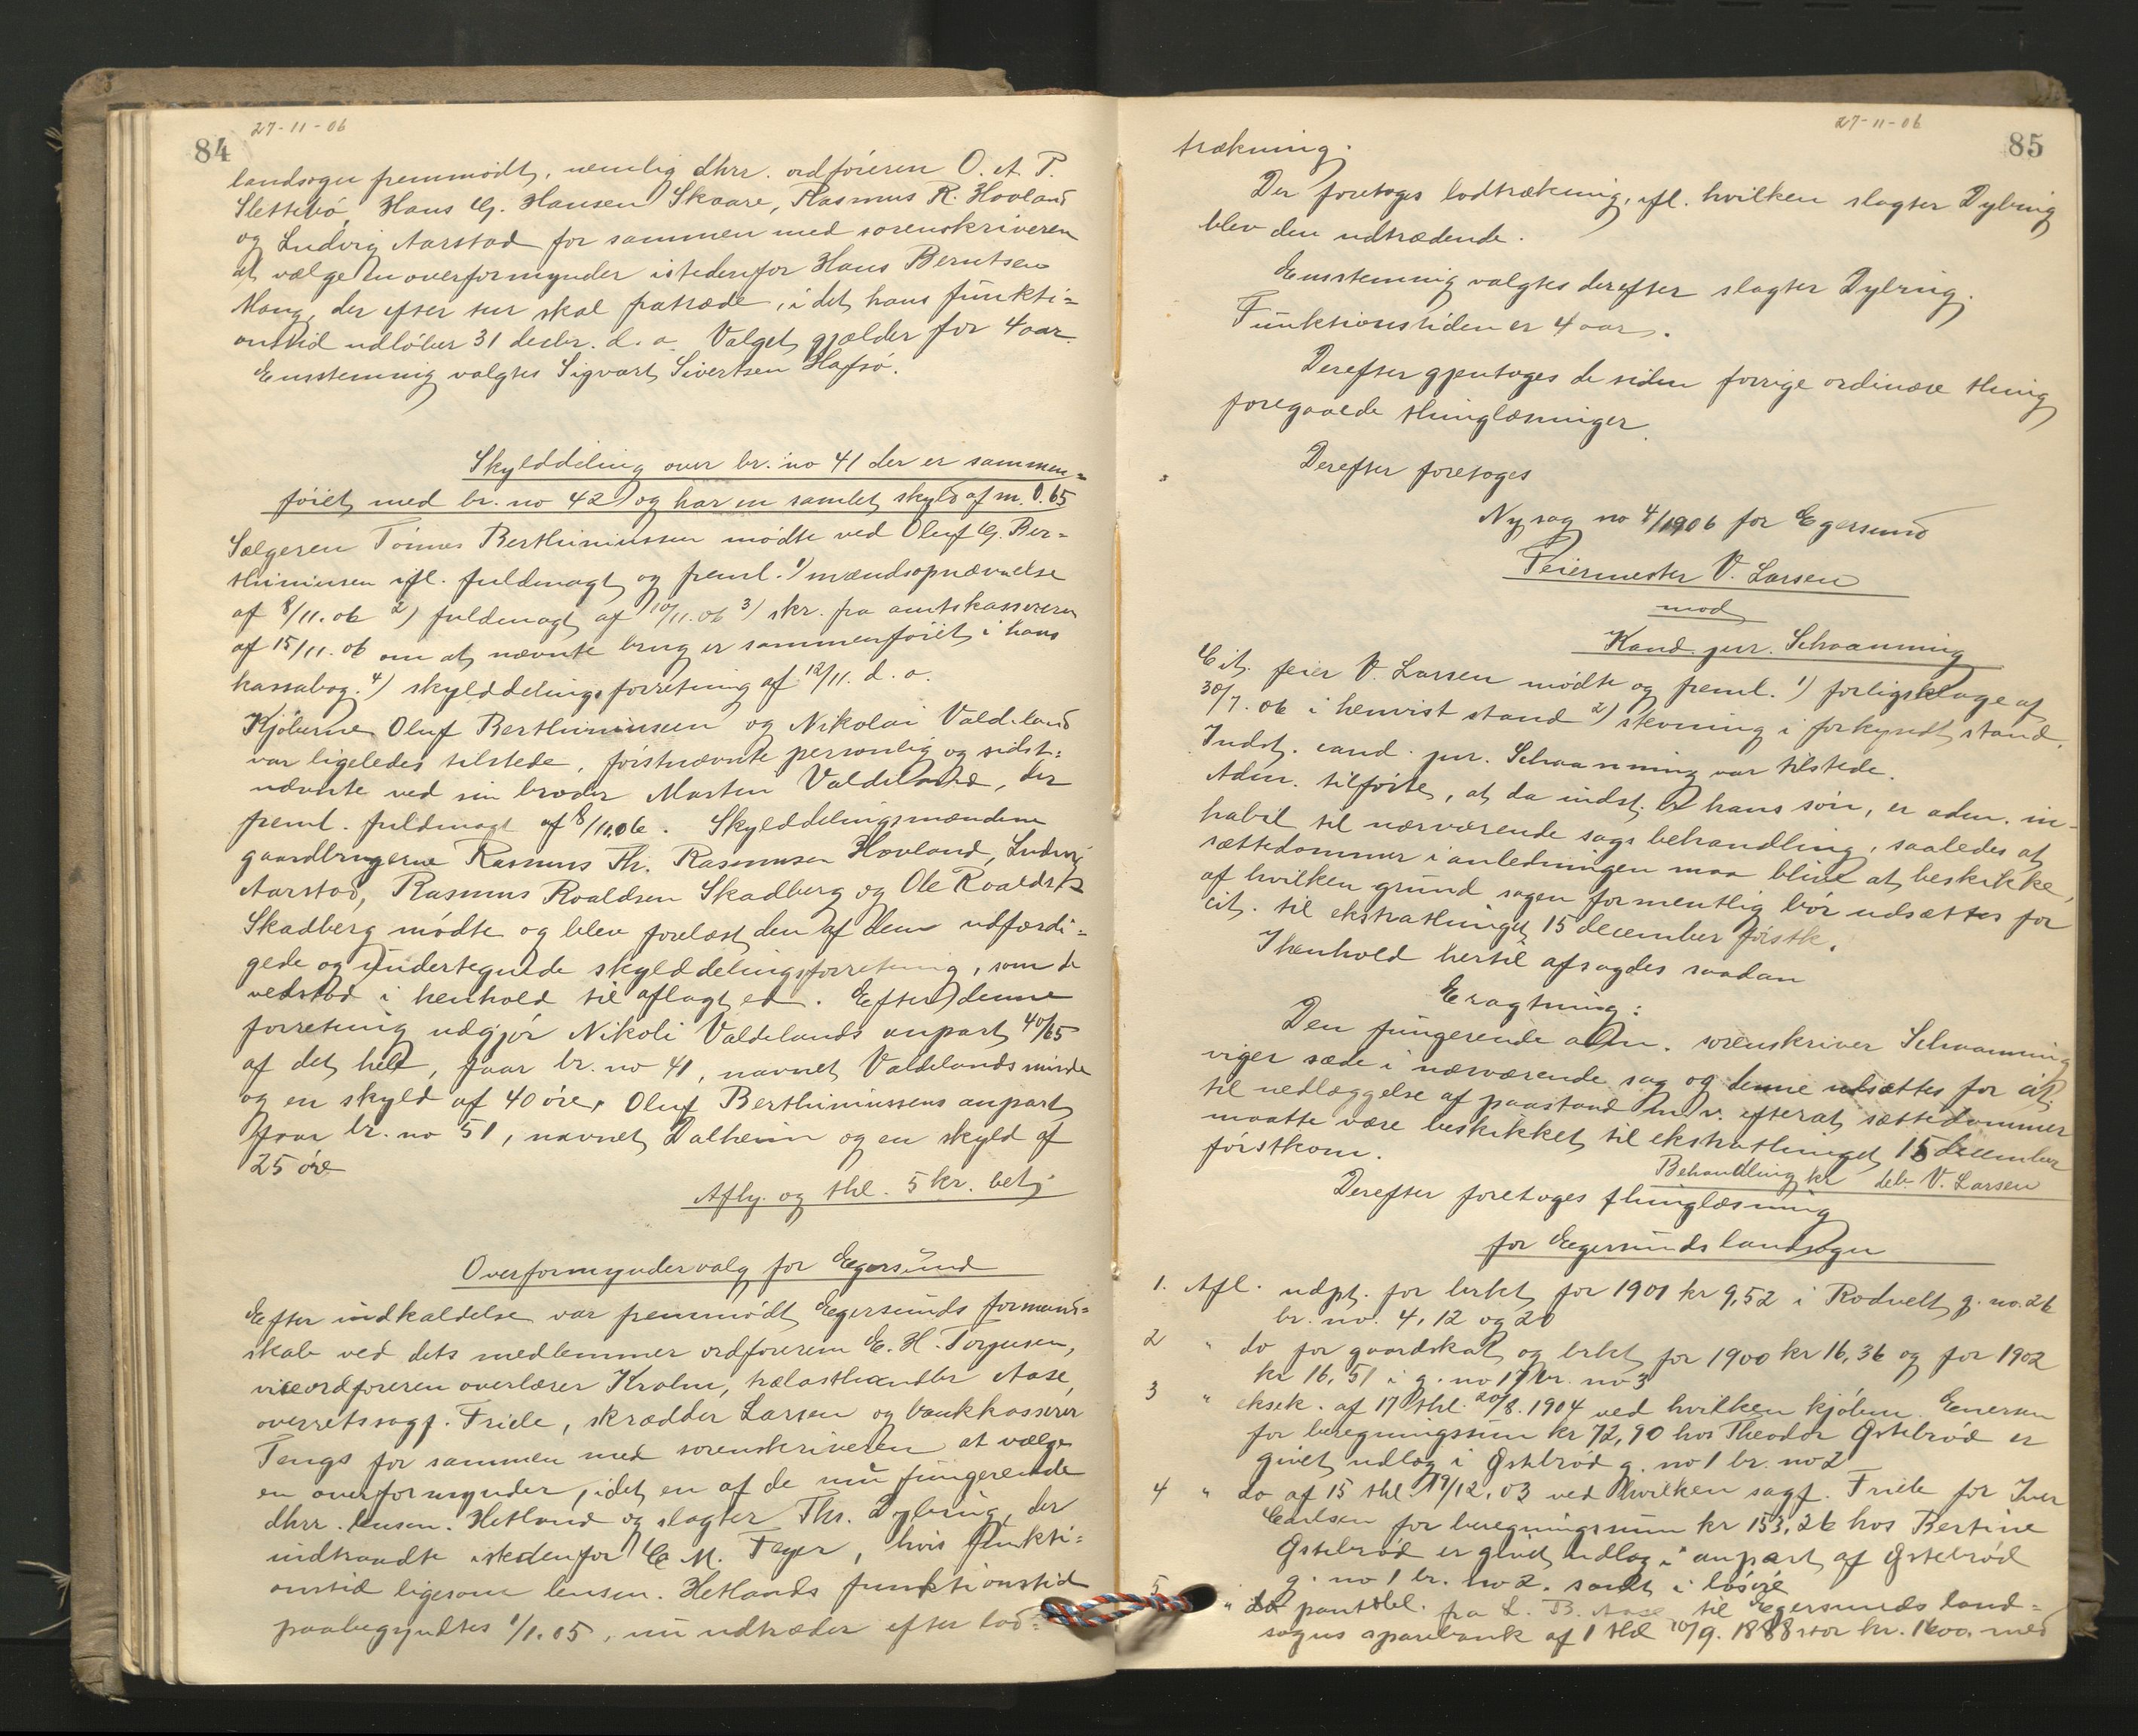 84
27-11-06
landsogn fremmødt, nemlig dhrr. ordføreren O. A. P.
Slettebø, Hans G. Hansen Skaare, Rasmus R. Hovland
og Ludvig Aarstad for sammen med sorenskriveren
at vælge en overformynder istedenfor Hans Berntsen
Mong, der efter tur skal fratræde, i det hans funkti=
onstid udløber 31 decbr. d. a. Valget gjælder for 4 aar.
Ensstemmig valgtes Sigvart Sivertsen Hafsø.
Skylddeling over br. no 41 der er sammen=
føiet med br. no 42 og har en samlet skyld af m. 0.65
Sælgeren Tønnes Berthiniussen mødte ved Oluf G. Ber=
thiniusen ifl. fuldmagt og freml. 1) mændsopnævnelse
af 8/11.06 2) fuldmagt af 10/11.06 3) skr. fra amtskassereren
af 15/11.06 om at nævnte brug er sammenføiet i hans
kassabog. 4) skylddelingsforretning af 12/11. d. a.
Kjøberne Oluf Berthiniussen og Nikolai Valdeland
var ligeledes tilstede, førstnævnte personlig og sidst=
nævnte ved sin broder Morten Valdeland, der
freml. fuldmagt af 8/11.06. Skylddelingsmændene
gaardbrugerne Rasmus Th. Rasmusen Hovland, Ludvig
Aarstad, Rasmus Roaldsen Skadberg og Ole Roalds
Skadberg mødte og blev forelæst den af dem udfærdi=
gede og undertegnede skylddelingsforretning, som de
vedstod i henhold til aflagt ed. Efter denne
forretning udgjør Nikoli Valdelands anpart 40/65
af det hele, faar br. no 41, navnet Valdelandsminde
og en skyld af 40 øre, Oluf Berthiniussens anpart
faar br. no 51, navnet Dalheim og en skyld af
25 øre
Afhj. og thl. 5 kr. bet.
Overformyndervalg for Egersund
Efter indkaldelse var fremmødt Egersunds formand=
skab ved dets medlemmer ordføreren E. H. Torgusen,
viceordføreren overlærer Krohn, trælasthandler Aase,
overretssagf. Friele, skrædder Larsen og bankkasserer
Tengs for sammen med sorenskriveren at vælge
en overformynder, idet en af de nu fungerende
dhrr. lensm. Hetland og slagter Ths. Dybing, der
indtraadte istedenfor C. M. Feyer, hvis funkti=
onstid ligesom lensm. Hetlands funktionstid
paabegyndtes 1/1.05, nu udtræder efter lod=
27-11-06
85
trækning.
Der foretoges lodtrækning, ifl. hvilken slagter Dybing
blev den udtrædende.
Ensstemmig valgtes derefter slagter Dybing.
Funktionstiden er 4 aar.
Derefter gjentoges de siden forrige ordinære thing
foregaaede thinglæsninger.
Derefter foretoges
Ny sag no 4/1906 for Egersund
Feiermester V. Larsen
mod
Kand. jur. Schaanning
Cit. feier V. Larsen mødte og freml. 1) forligsklage af
30/7.06 i henvist stand 2) stevning i forkyndt stand.
Indst. cand. jur. Schaanning var tilstede.
Adm. tilførte, at da indst. er hans søn, er adm. in-
habil til nærværende sags behandling, saaledes at
sættedommer i anledningen maa blive at beskikke,
af hvilken grund sagen formentlig bør udsættes for
cit. til ekstrathinget 15 december førstk.
I henhold hertil afsagdes saadan
Eragtning:
Den fungerende adm. sorenskriver Schaanning
viger sæde i nærværende sag og denne udsættes for cit.
til nedlæggelse af paastand m. v. efterat sættedommer
maatte være beskikket til ekstrathinget 15 december
førstkom.
Behandling kr deb. V. Larsen
Derefter foretoges thinglæsning
for Egersunds landsogn
1. Afl. udpt. for brkt for 1901 kr 9,52 i Rodvelt g. no. 26
br. no. 4, 12 og 20
2 " do for gaardskat og brkt for 1900 kr 16,36 og for 1902
kr 16,51 i g. no 17 br. no 3
3 " eksek. af 17 thl. 20/8. 1904 ved hvilken kjøbm. Enersen
for beregningssum kr 72,90 hos Theodor Østebrød er
givet udlæg i Østebrød g. no 1 br. no 2
4 " do af 15 thl. 19/12.03 ved hvilken sagf. Friele for Iver
Carlsen for beregningssum kr 153,26 hos Bertine
Østebrød er givet udlæg i anpart af Østebrød
g. no 1 br. no 2. samt i løsøre
5 " do pantobl. fra L. B. Aase til Egersunds land=
sogns sparebank af 1 thl 10/9. 1888 stor kr. 1600. med